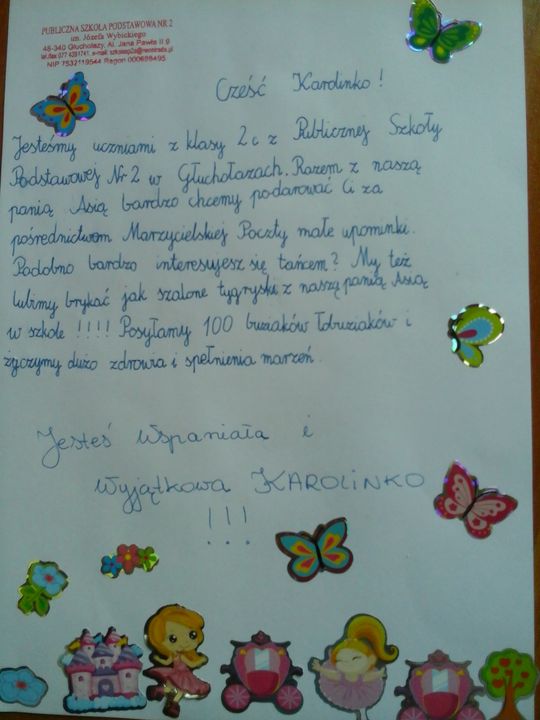 PUBLICZNA SZKOŁA PODSTAWOWA NR 2
im. Józefa Wybickiego
48-340 Głuchołazy, Al. Jana Pawła II 9
NIP 7532119544 Regon 000698495
Cześć Karolinko!
Jesteśmy uczniami z klasy 2c z Publicznej Szkoły
Podstawowej Nr 2 w Głuchołazach. Razem z naszą
panią Asią bardzo chcemy podarować Ci za
pośrednictwem Marzycielskiej Poczty małe upominki.
Podobno bardzo interesujesz się tańcem? My też
lubimy brykać jak szalone tygryski z naszą panią Asią
w szkole !!!! Posyłamy 100 buziaków łobuziaków i
życzymy dużo zdrowia i spełnienia marzeń.
Jesteś Wspaniała i
Wyjątkowa KAROLINKO
!!!